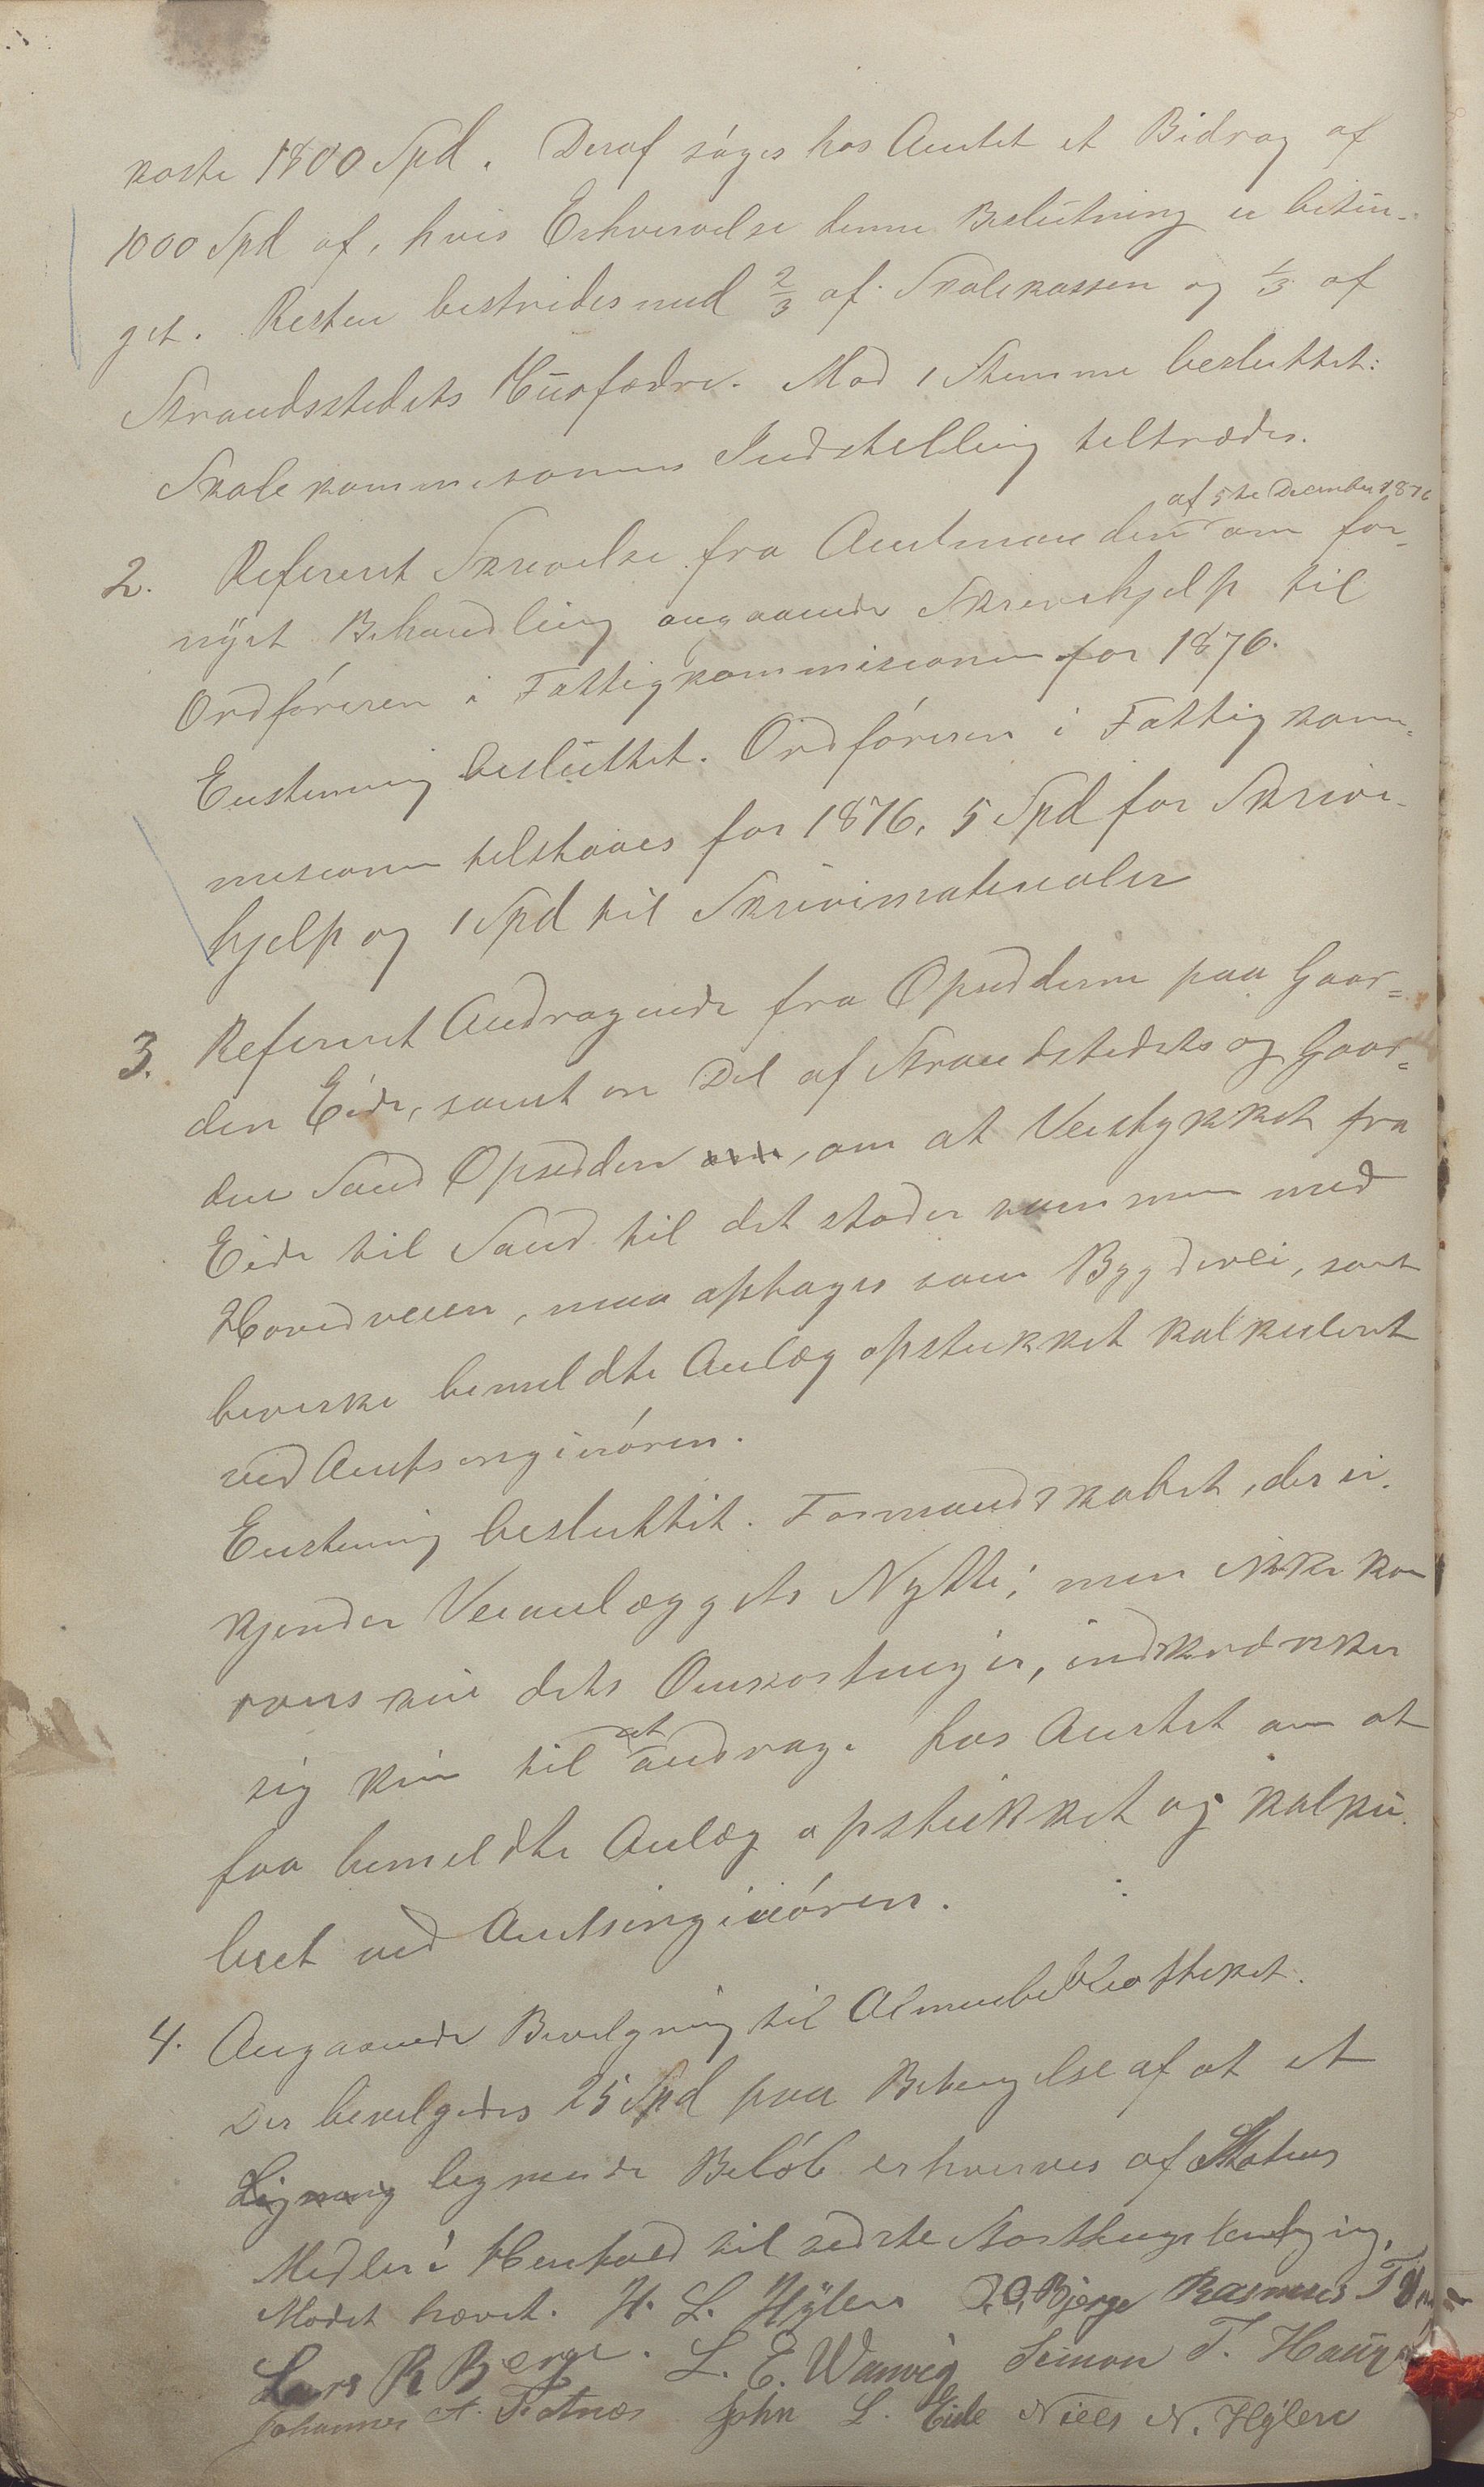 koste 1800 Spd. Deraf søges hos Amtet et Bidrag af
1000 Spd af, hvis Erhvervelse denne Beslutning er betin-
get. Resten bestrides med 2/3 af Skolekassen og 1/3 af
Strandstedets Huusfædre. Mod 1 Stemme besluttet:
Skolekommisionens Indstilling tiltrædes.
af 5te December 1876
2. Refereret Skrivelse fra Amtmanden om for-
nyet Behandling angaaende Skrivehjelp til
Ordføreren i Fattigkommisionen for 1876.
Enstemmig besluttet. Ordføreren i Fattigkom-
misionen tilstaaes for 1876, 5 Spd for Skrive-
hjelp og 1 Spd til Skrivematerialer
3. Refereret Andragende fra Opsidderne paa Gaar=
den Eide, samt en Del af Strandstedets og Gaar=
den Sand Opsiddere, om at Veistykket fra
Eide til Sand til det støder sammen med
Hovedveien, maa optages som Bygdevei, samt
bevirke bemeldte Anlæg opstukket kalkuleret
ved Amtsingeniøren.
Enstemmig besluttet. Formandskabet, der er-
kjender Veianlæggets Nytte; men ikke kan
dets Omkostninger, indskrænker
sig kun til at andrage hos Amtet om at
faa bemeldte Anlæg opstukket og kalku-
leret ved Amtsingeniøren.
4. Angaaende Bevilgning til Almuebibliotheket.
Der bevilgedes 25 Spd paa Betingelse af at et
Ligning lignende Beløb erhverves af Statens
Midler i Henhold til sidste Storthings
Mødet hævet. H. L. Hÿlen O. O. Bjerge Rasmus T
Lars R Berge. L. E. Warvig Simon T. Haug
Johannes A. Fatnæs John L. Eide Niels N. Hÿlen